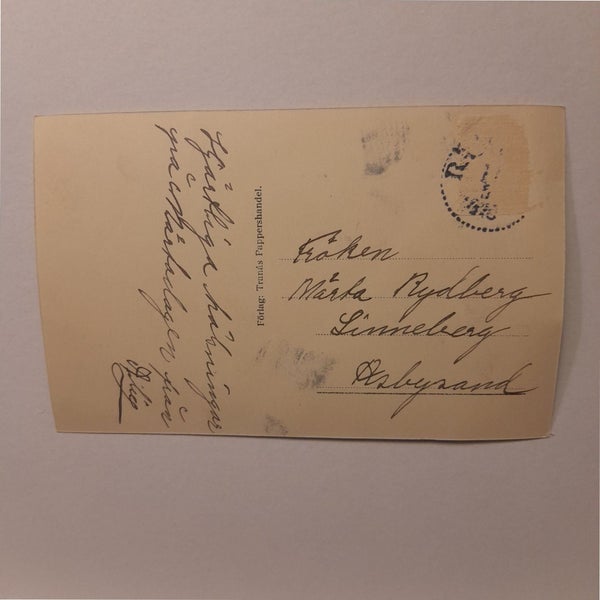 Hjärtliga hälsningar
på Märtadagen från
Förlag: Tranås Pappershandel.
Fröken
Märta Rydberg
Linneberg
Asbysand